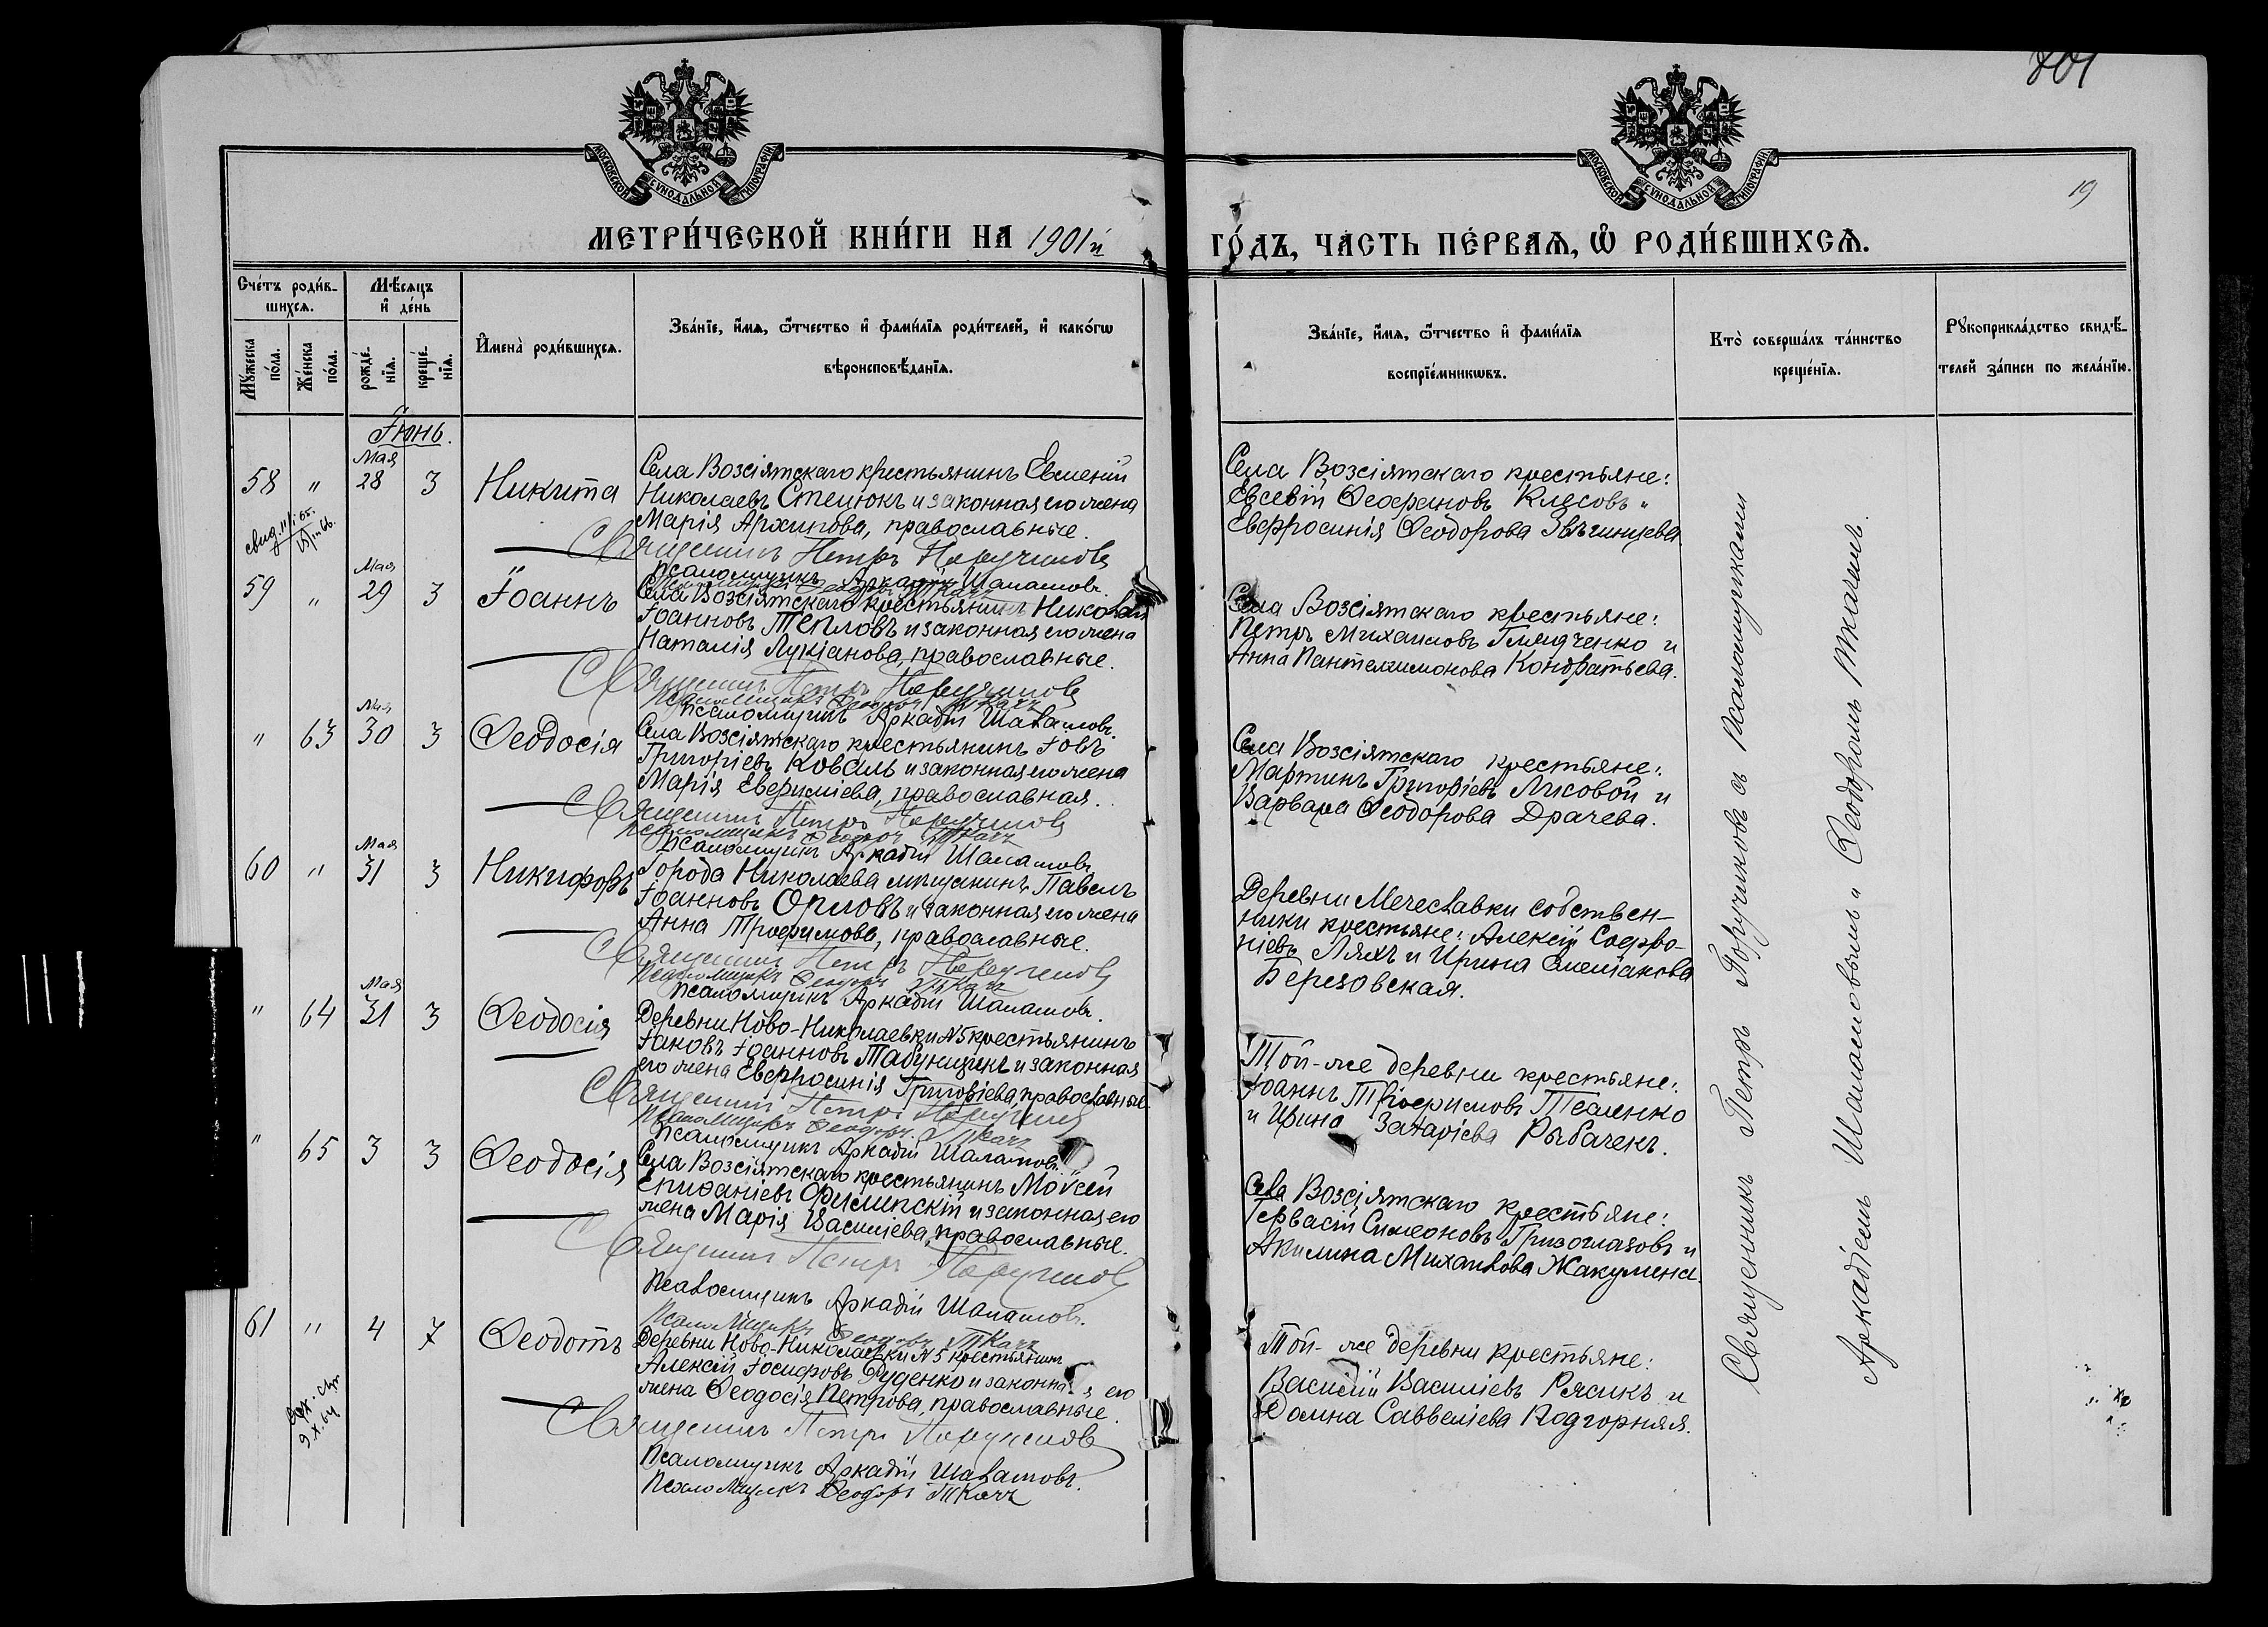 801
19
МОСКОВСКОЙ СѴНОДАЛЬНОЙ ТИПОГРАФІИ
МОСКОВСКОЙ СѴНОДАЛЬНОЙ ТИПОГРАФІИ
МЕТРИ́ЧЕСКОЙ КНИ́ГИ НА 1901й
ГО́ДЪ, ЧА́СТЬ ПЕ́РВАѦ, Ѡ РОДИ́ВШИХСѦ.
Сче́тъ роди́в-
шихсѧ.
Мѣ́сѧцъ
и҆ де́нь
Мꙋ́жеска
по́ла.
Же́нска
по́ла.
рожде́-
нїѧ.
креще́-
нїѧ.
И҆мена̀ роди́вшихсѧ.
Зва́нїе, и҆́мѧ, ѻ҆́тчество и҆ фами́лїѧ роди́телей, и҆ како́гѡ
вѣроисповѣ́данїѧ.
Зва́нїе, и҆́мѧ, ѻ҆́тчество и҆ фами́лїѧ
воспрїе́мникѡвъ.
Кто̀ соверша́лъ та́инство
креще́нїѧ.
Рꙋкоприкла́дство свидѣ́-
телей за́писи по жела́нїю.
Іюнь.
58 " Мая 28 3 Никита
Села Возсіятскаго крестьянинъ Евмений
Николаевъ Стецюкъ и законная его жена
Марія Архипова, православные.
Священникъ Петръ Поручиковъ
Псаломщикъ Аркадій Шаламовъ.
Псаломщикъ Ѳеодоръ Ткачъ
Села Возсіятскаго крестьяне:
Евсевій Ѳеофановъ "
Евфросинія Ѳеодорова Звѣчинцева
59 " Мая 29 3 Іоаннъ
Села Возсіятскаго крестьянинъ Николай
Іоанновъ Тепловъ и законная его жена
Наталія Лукіанова, православные.
Священникъ Петръ Поручиковъ
Псаломщикъ Ѳеодоръ Ткачъ
Псаломщикъ Аркадій Шаламовъ.
Села Возсіятскаго крестьяне:
Петръ Михаиловъ и
Анна Пантелеимонова Кондратьева.
" 63 Мая 30 3 Ѳеодосія
Села Возсіятскаго крестьянинъ Іовъ
Григоріевъ Коваль и законная его жена
Марія Евфиміева, православная.
Священникъ Петръ Поручиковъ
Псаломщикъ Ѳеодоръ Ткачъ
Псаломщикъ Аркадій Шаламовъ
Села Возсіятскаго крестьяне:
Мартинъ Григоріевъ Лисовой и
Варвара Ѳеодорова Драчева.
60 " Мая 31 3 Никифоръ
Города Николаева мѣщанинъ Павелъ
Іоанновъ Орловъ и законная его жена
Анна Трофимова, православные.
Священникъ Петръ Поручиковъ
Псаломщикъ Ѳеодоръ Ткачъ
Псаломщикъ Аркадій Шаламовъ.
Деревни Мечеславки собствен-
ники крестьяне: Алексій Софро-
ніевъ Ляхъ и Ирина
Березовская.
" 64 Мая 31 3 Ѳеодосія
Деревни Ново-Николаевки №5 крестьянинъ
Іаковъ Іоанновъ Табунщикъ и законная
его жена Евфросинія Григоріева, православные.
Священникъ Петръ Поручиковъ
Псаломщикъ Ѳеодоръ Ткачъ
Псаломщикъ Аркадій Шаламовъ.
Той-же деревни крестьяне:
Іоаннъ Трофимовъ Тесленко
и Ирина Захаріева Рыбачекъ.
" 65 3 3 Ѳеодосія
Села Возсіятскаго крестьянинъ Моѵсей
Епифаніевъ Филипскій и законная его
жена Марія Василіева, православные.
Священникъ Петръ Поручиковъ
Псаломщикъ Аркадій Шаламовъ.
Псаломщикъ Ѳеодоръ Ткачъ
Села Возсіятскаго крестьяне:
Гервасій Симеоновъ Гризоглазовъ и
Акилина Михаилова Жакумена.
61 " 4 7 Ѳеодотъ
Деревни Ново-Николаевки №5 крестьянинъ
Алексій Іосифовъ Руденко и законная его
жена Ѳеодосія Петрова, православные.
Священникъ Петръ Поручиковъ
Псаломщикъ Аркадій Шаламовъ.
Псаломщикъ Ѳеодоръ Ткачъ
Той-же деревни крестьяне:
Василій Василіевъ Рясикъ и
Домна Саввеліева Подгорняя.
Священникъ Петръ Поручиковъ съ Псаломщиками
Аркадіемъ Шаламовымъ и Ѳеодоромъ Ткачемъ.